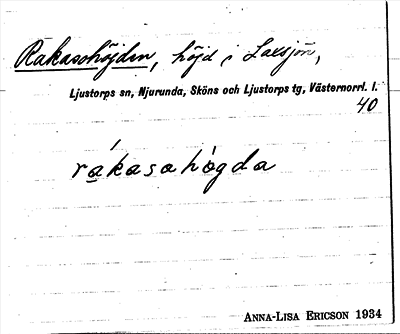 Rakasohöjden, höjd i Laxsjön,
Ljustorps sn, Njurunda, Sköns och Ljustorps tg, Västernorrl. l.
40
rákasahögda
ANNA-LISA ERICSON 1934